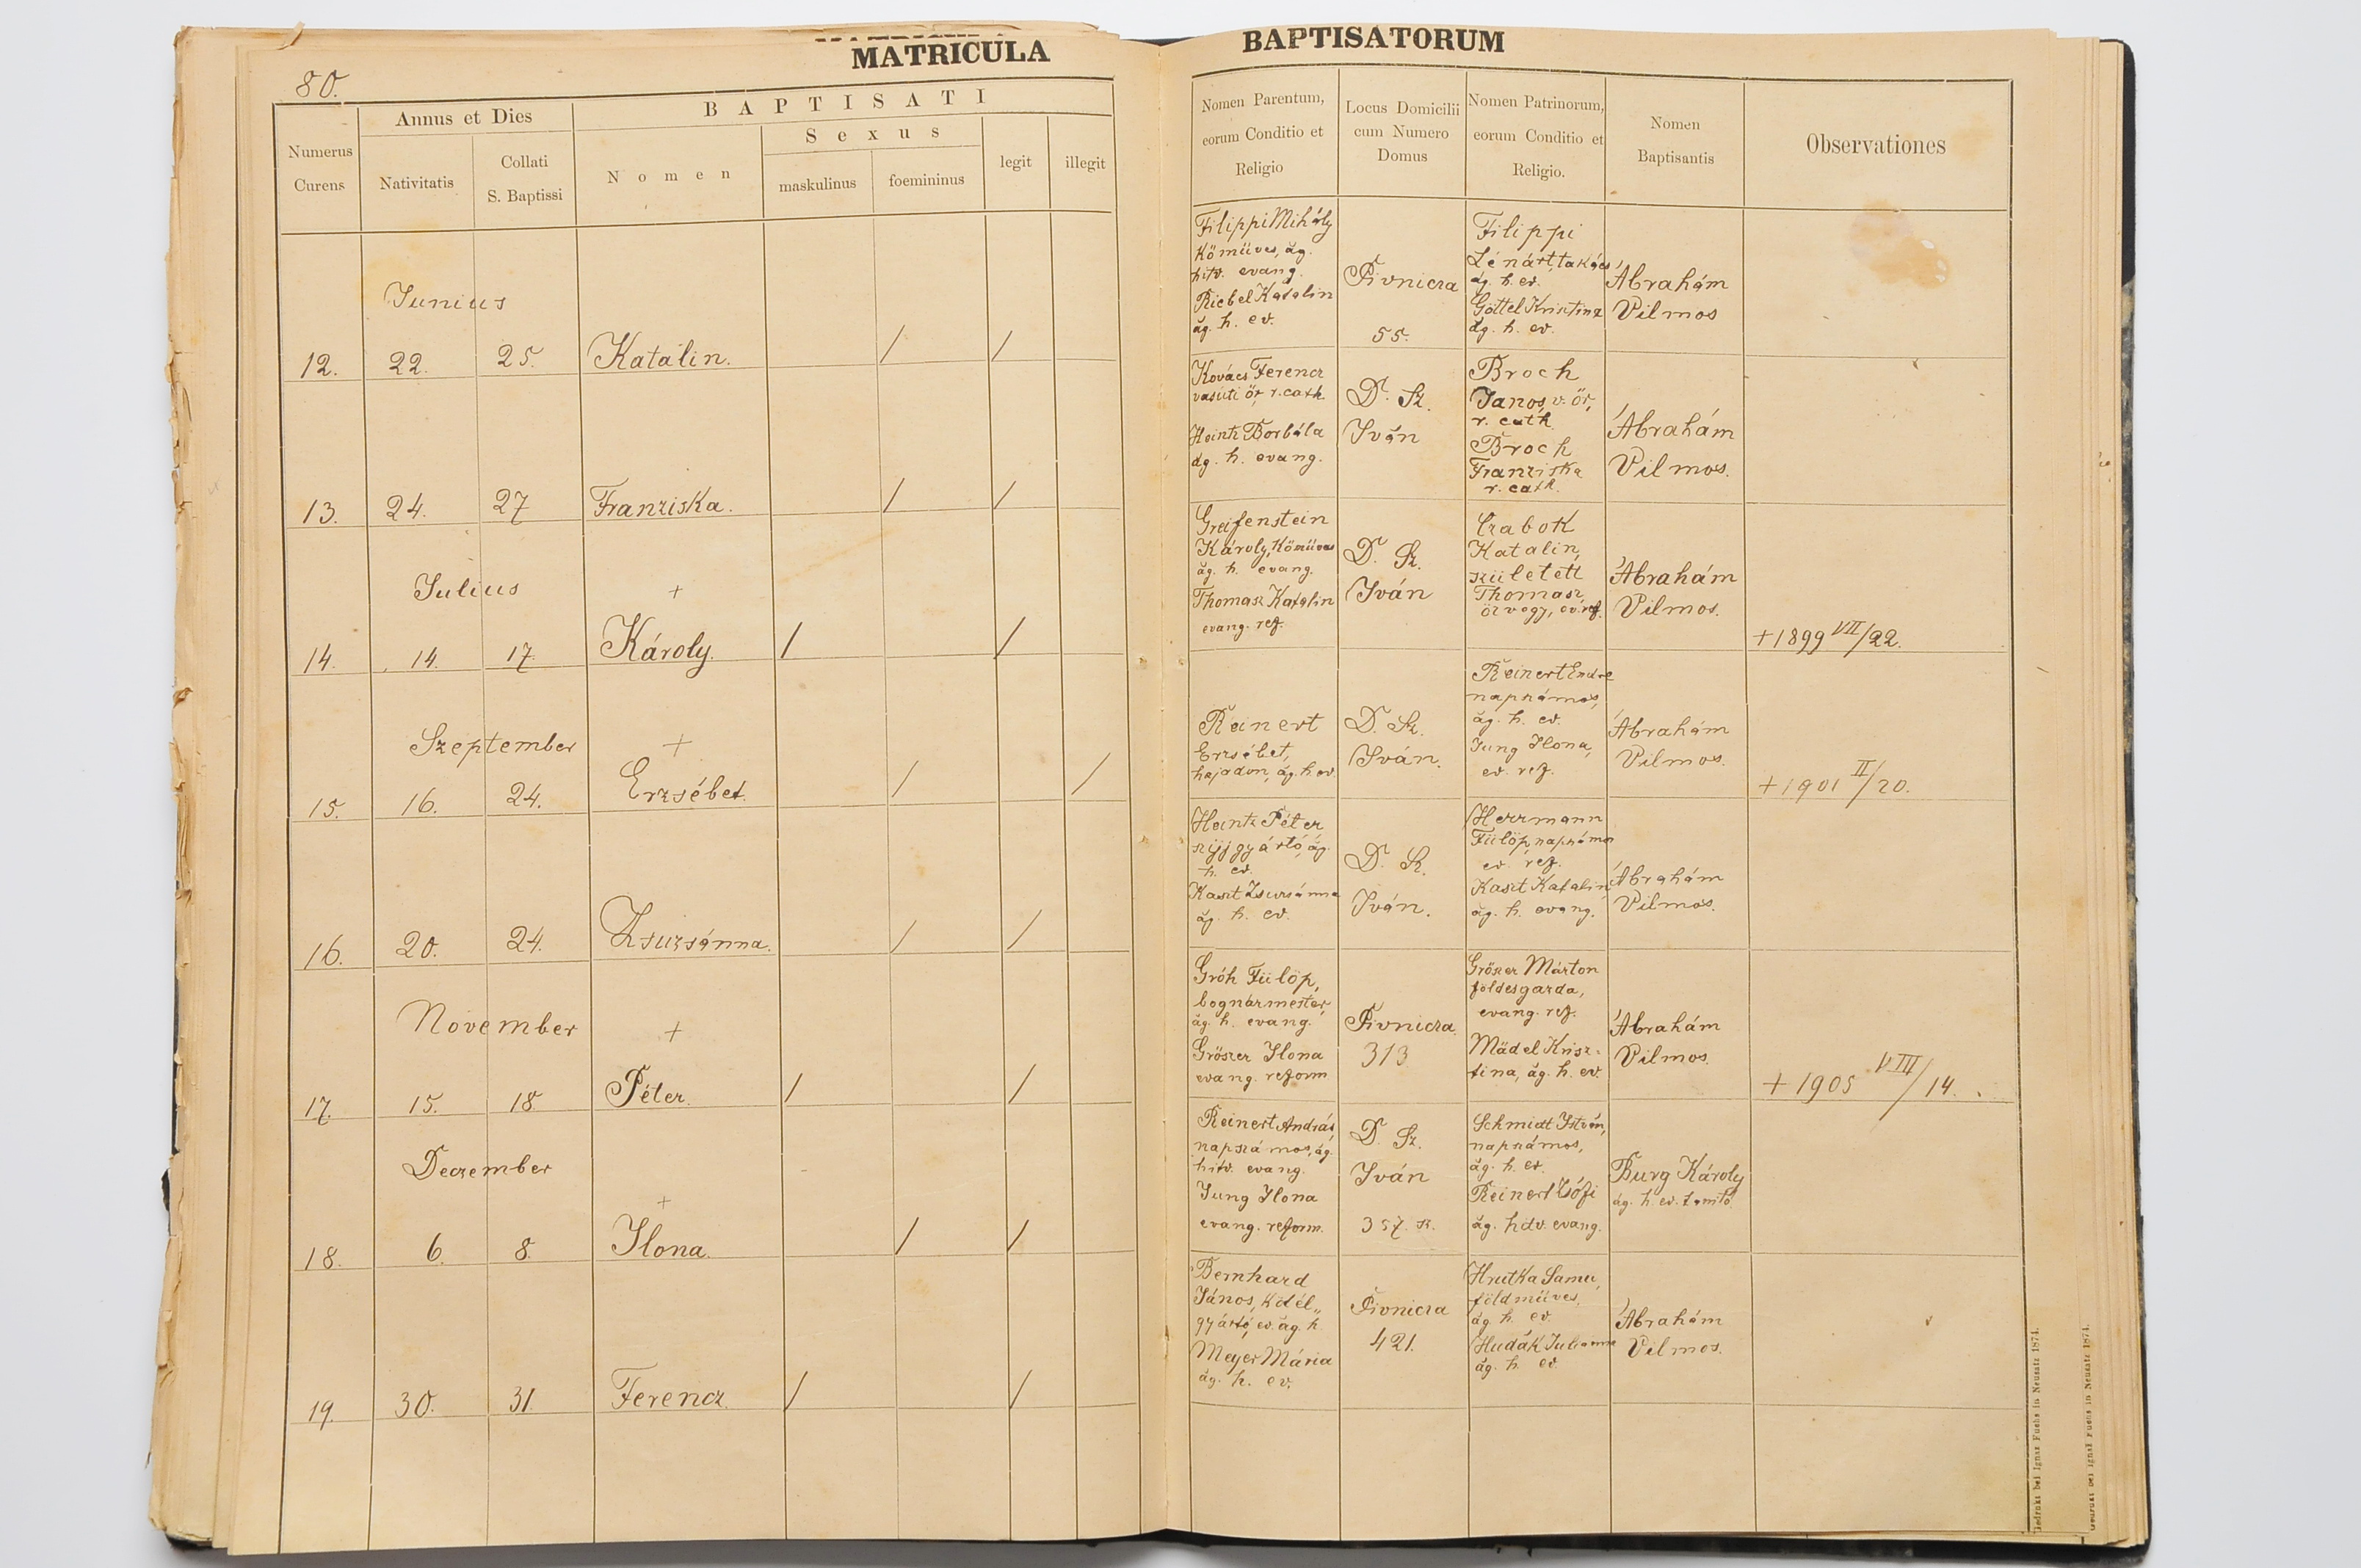 MATRICULA
80.
Numerus
Curens
Annus et Dies
Nativitatis
Collati
S. Baptissi
BAPTISATI
Nomen
Sexus
maskulinus
foemininus
legit
illegit
Junius
12. 22. 25. Katalin. / /
13. 24. 27 Franziska. / /
Julius +
14. 14. 17. Károly. / /
Szeptember +
15. 16. 24. Erzsébet. / /
16. 20. 24. Zsuzsánna. / /
November +
17. 15. 18 Péter. / /
Deczember
+
18. 6. 8. Ilona. / /
19. 30. 31. Ferencz. / /
BAPTISATORUM
Nomen Parentum,
eorum Conditio et
Religio
Locus Domicilii
cum Numero
Domus
Nomen Patrinorum,
eorum Conditio et
Religio.
Nomen
Baptisantis
Observationes
Filippi Mihály
Kőmüves, ág.
hitv. evang.
Riebel Katalin
ág. h. ev.
Pivnicza
55.
Filippi
Lénárt, takács
ág. h. ev.
Göttel Kristina
ág. h. ev.
Ábrahám
Vilmos
Kovács Ferencz
vasúti őr, r. cath.
Heintz Borbála
ág. h. evang.
D. Sz.
Iván
Broch
Janos, v. őr,
r. cath.
Broch
Franziska
r. cath.
Ábrahám
Vilmos.
Greifenstein
Károly, Kőmüves
ág. h. evang.
Thomasz Katalin
evang. ref.
D. Sz.
Iván
Czabok
Katalin,
született
Thomasz,
özvegy, ev. ref.
Ábrahám
Vilmos.
+ 1899 VII/22.
Reinert
Erzsébet,
hajadon, ág. h. ev.
D. Sz.
Iván.
Reinert Endre
napszámos,
ág. h. ev.
Jung Ilona,
ev. ref.
Ábrahám
Vilmos.
+ 1901 II/20.
Heintz Péter
szijjgyártó, ág.
h. ev.
Kaszt Zsuzsánna
ág. h. ev.
D. Sz.
Iván.
Herrmann
Fülöp, napszámos
ev. ref.
Kaszt Katalin
ág. h. evang.
Ábrahám
Vilmos.
Gróh Fülöp,
bognármester,
ág. h. evang.
Grőszer Ilona
evang. reform.
Pivnicza
313
Grőszer Márton
földesgazda,
evang. ref.
Mädel Krisz-
tina, ág. h. ev.
Ábrahám
Vilmos.
+ 1905 VIII/14.
Reinert András,
napszámos, ág.
hitv. evang.
Jung Ilona
evang. reform.
D. Sz.
Iván
357. sz.
Schmidt István,
napszámos,
ág. h. ev.
Reinert Zsófi
ág. hdv. evang.
Burg Károly
ág. h. ev. tanító
Bernhard
János, Kötél„
gyártó, ev. ág. h.
Meyer Mária
ág. h. ev.
Pivnicza
421.
Hrutka Samu,
földmüves,
ág. h. ev.
Hudák Julianna
ág. h. ev.
Ábrahám
Vilmos.
Gedrukt bei Ignaz Fuchs in Neusatz 1874.
Gedrukt bei Ignaz Fuchs in Neusatz 1874.